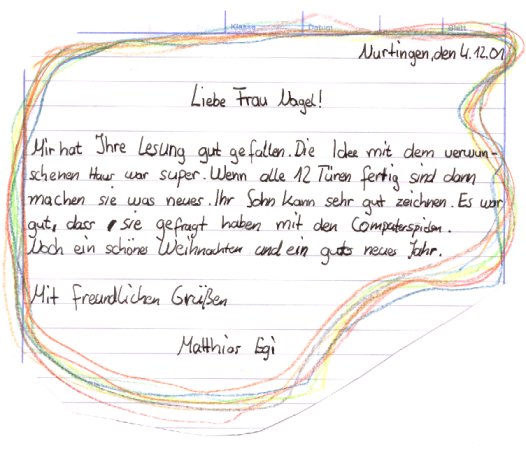 Klasse Datum Blatt
Nürtingen, den 4.12.01
Liebe Frau Nagel!
Mir hat Ihre Lesung gut gefallen. Die Idee mit dem verwun-
schenen Haus war super. Wenn alle 12 Türen fertig sind dann
machen sie was neues. Ihr Sohn kann sehr gut zeichnen. Es war
gut, dass sie gefragt haben mit den Computerspielen.
Noch ein schönes Weihnachten und ein gutes neues Jahr.
Mit freundlichen Grüßen
Matthias Egi